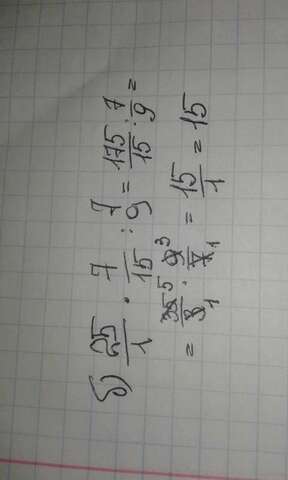 б) 25/1 · 7/15 : 7/9 = 175/15 : 7/9 =
= 35 5/3 1 · 9 3/7 1 = 15/1 = 15